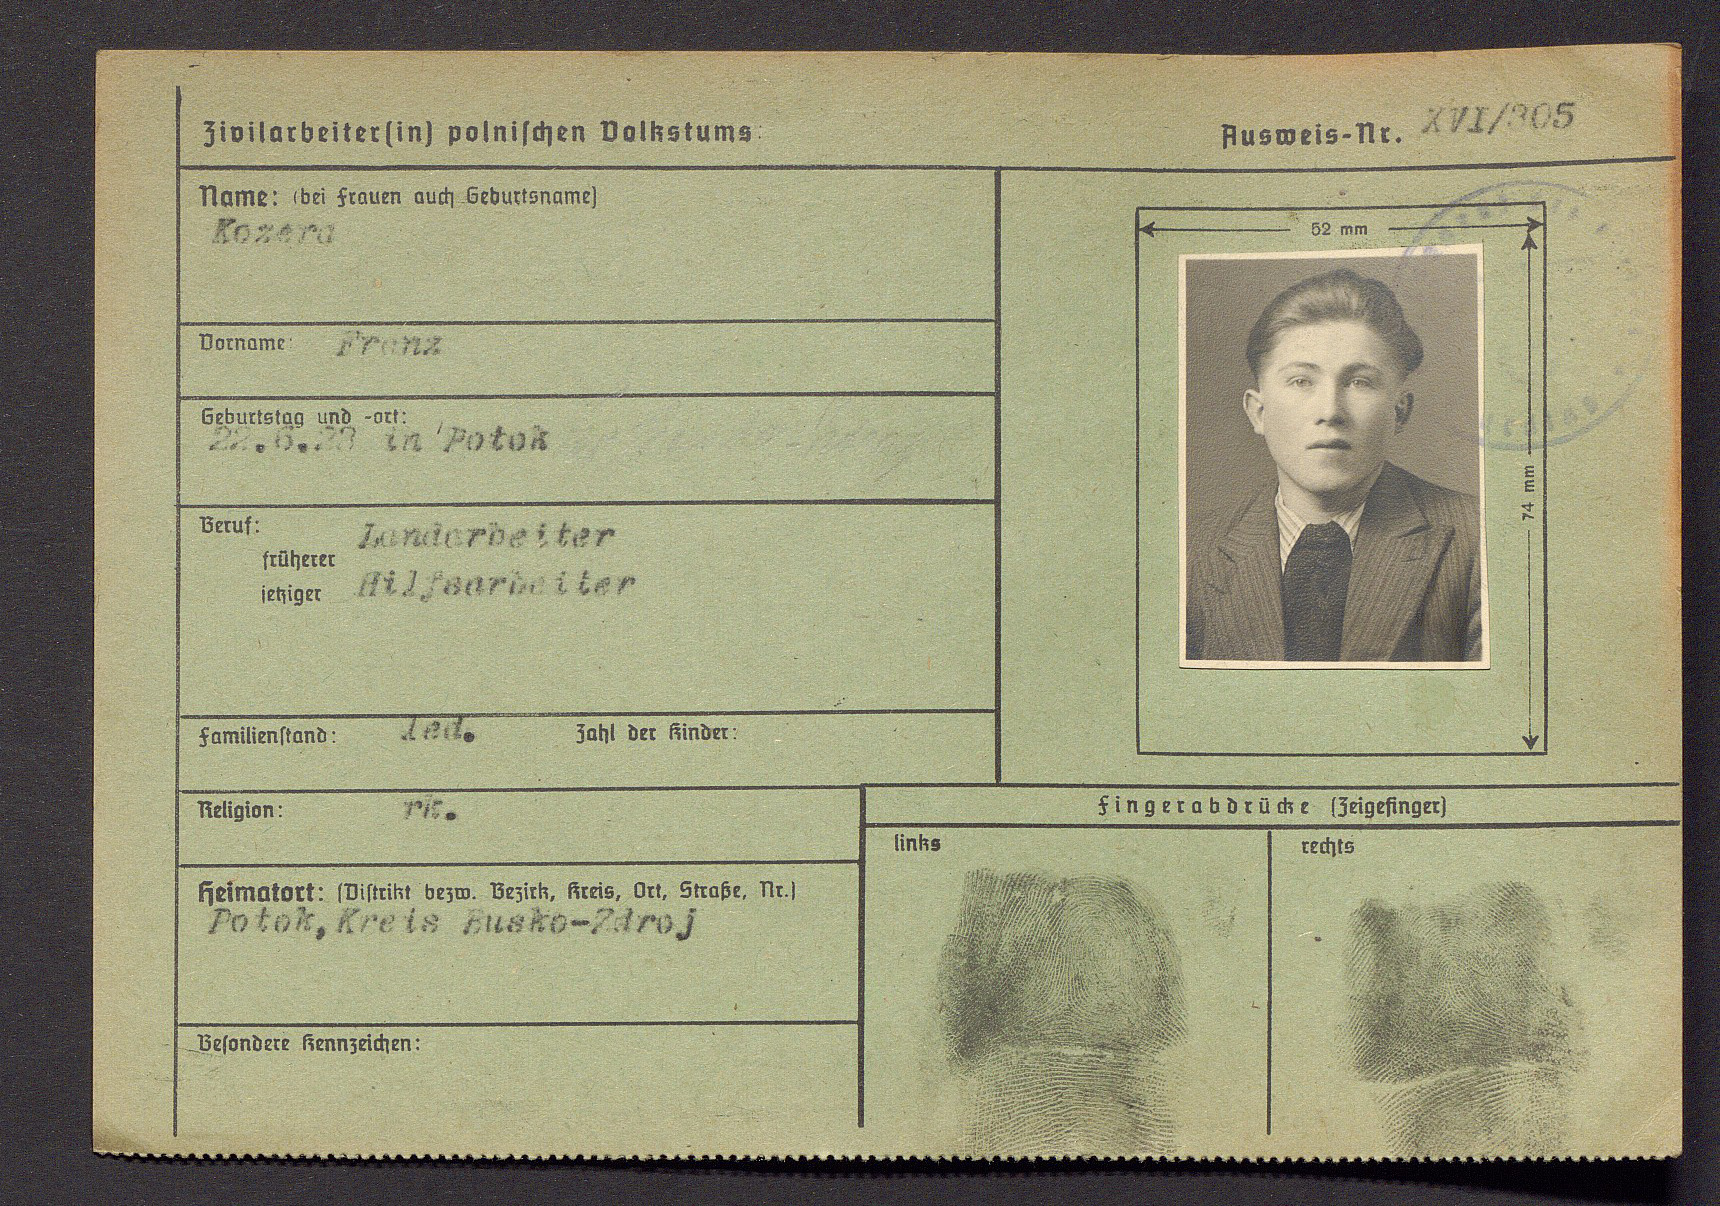 Zivilarbeiter(in) polnischen Volkstums:
Ausweis-Nr. XVI/305
Name: (bei Frauen auch Geburtsname)
Kozera
52 mm
Vorname: Franz
Geburtstag und -ort:
22.6.23 in Potok
74 mm
Beruf:
früherer Landarbeiter
jetziger Hilfsarbeiter
Familienstand: led. Zahl der Kinder:
Religion: rk.
Fingerabdrücke (Zeigefinger)
links rechts
Heimatort: (Distrikt bezw. Bezirk, Kreis, Ort, Straße, Nr.)
Potok, Kreis Busko-Zdroj
Besondere Kennzeichen: